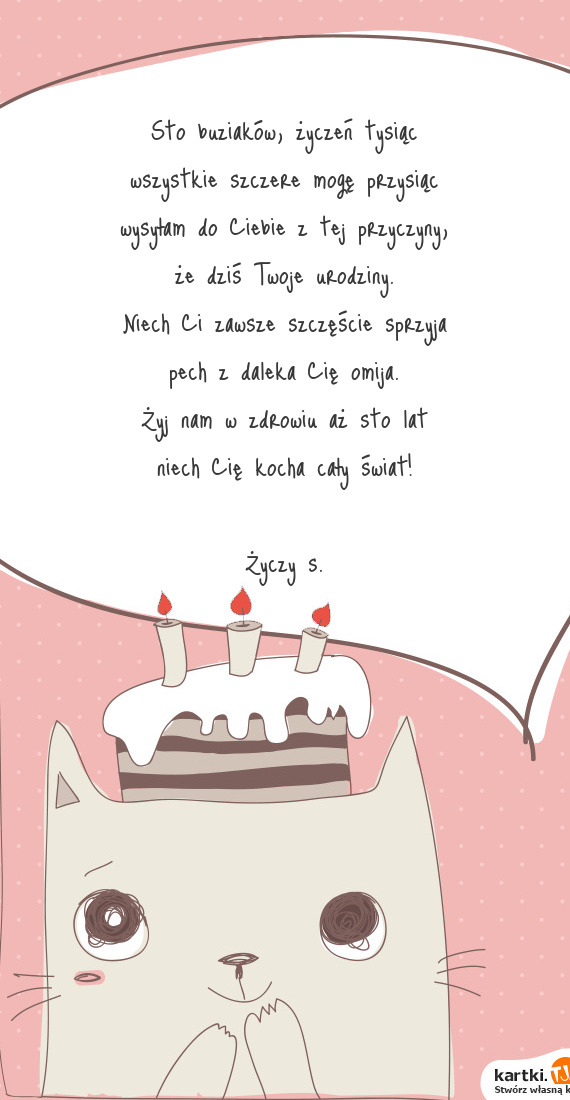 Sto buziaków, życzeń tysiąc
wszystkie szczere mogę przysiąc
wysyłam do Ciebie z tej przyczyny,
że dziś Twoje urodziny.
Niech Ci zawsze szczęście sprzyja
pech z daleka Cię omija.
Żyj nam w zdrowiu aż sto lat
niech Cię kocha cały świat!
Życzy s.
kartki.TJ
Stwórz własną k